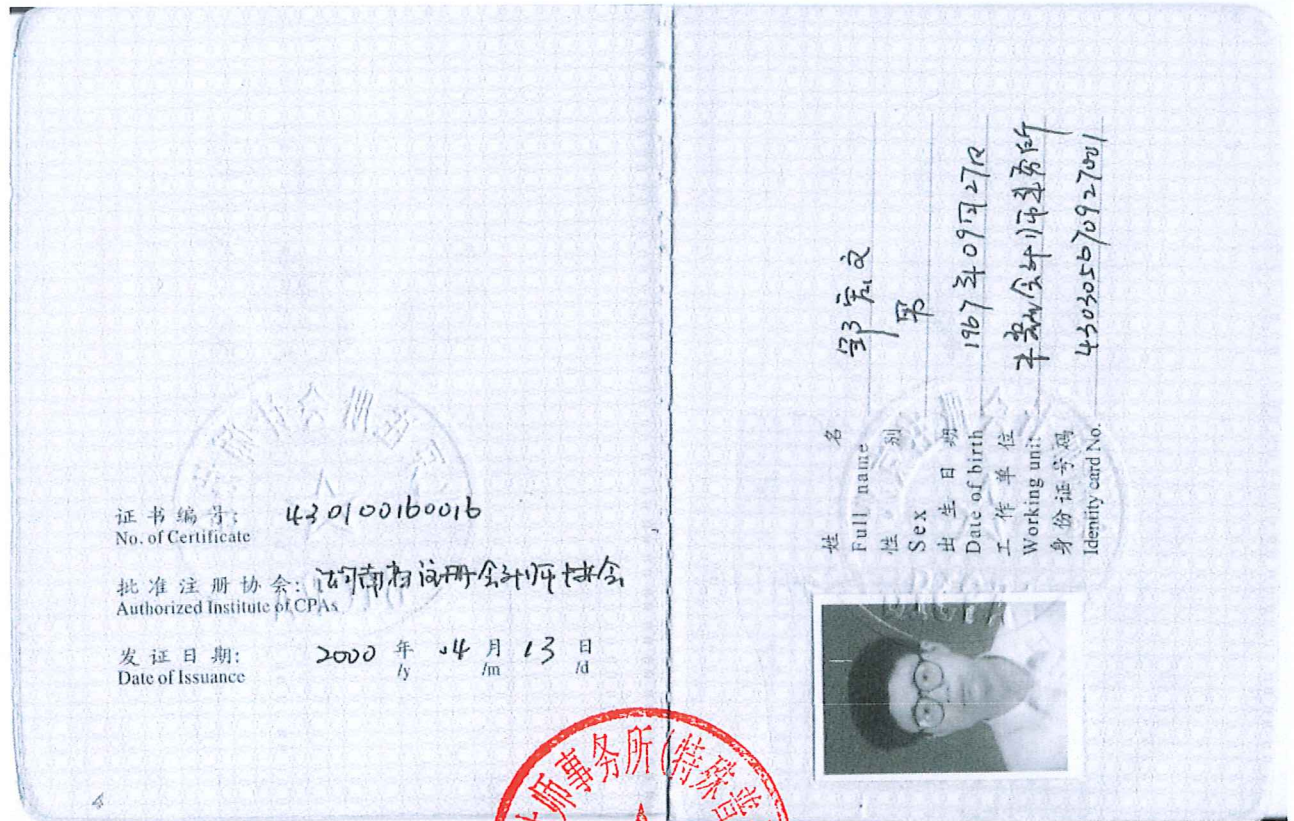 证书编号: 430100160016
No. of Certificate
批准注册协会: 湖南省注册会计师协会
Authorized Institute of CPAs
发证日期: 2000 年 04 月 13 日
Date of Issuance /y /m /d
姓名 邹宏文
Full name
性别 男
Sex
出生日期 1967年09月27日
Date of birth
工作单位 会计师事务所
Working unit
身份证号码 430305670927001
Identity card No.
师事务所(特殊普